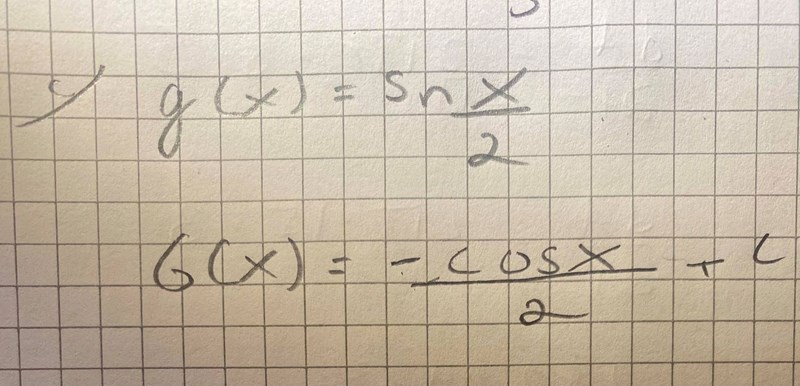 c) g(x) = sn x/2
G(x) = -cosx/2 + C